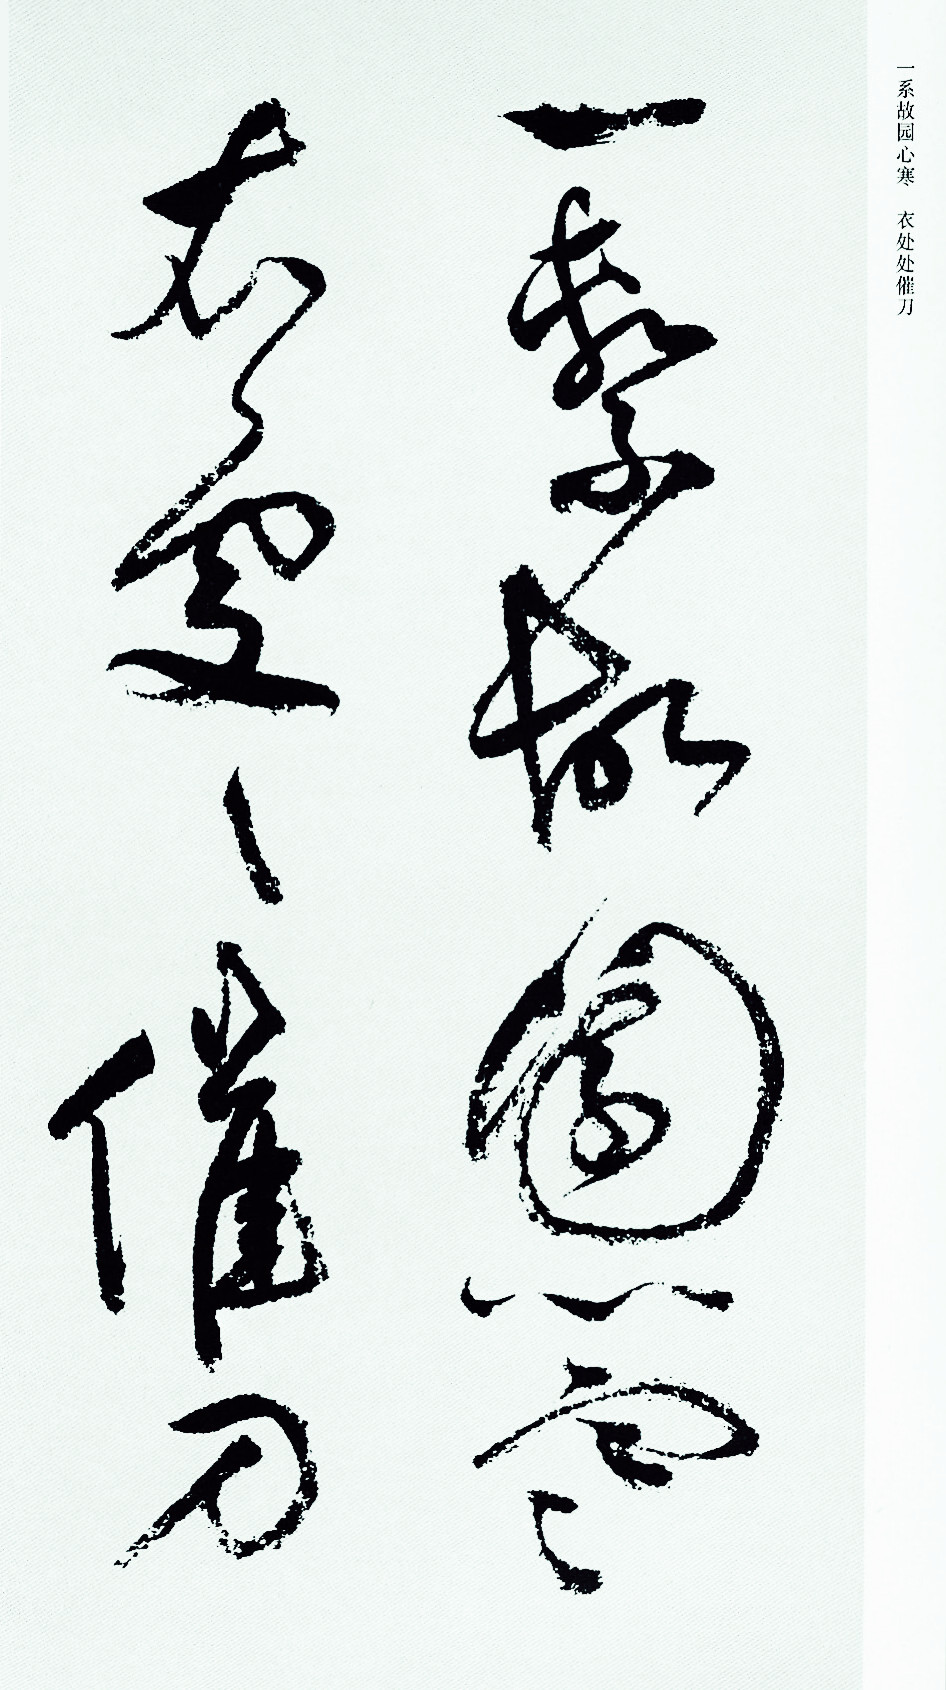 一系故园心寒　衣处处催刀
一繫故園心寒
衣處〻催刀